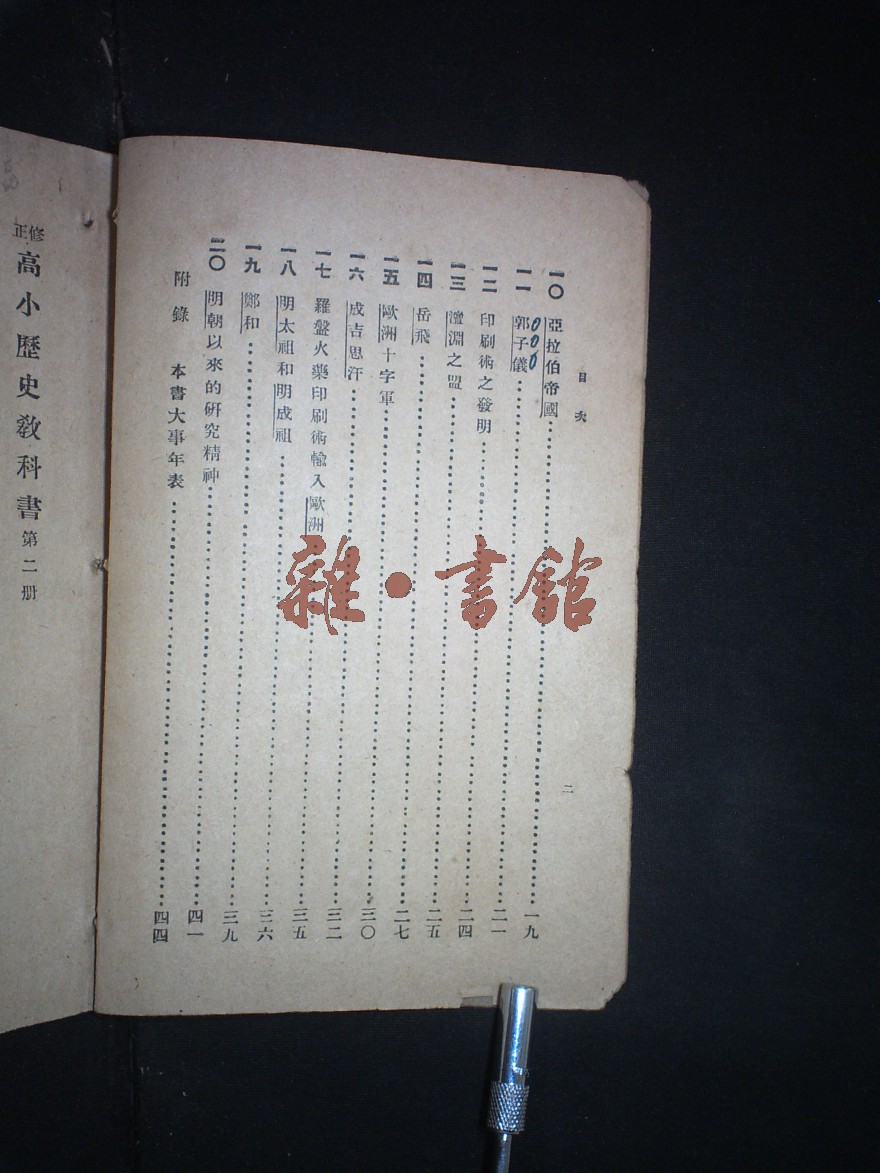 目次
二
一〇 亞拉伯帝國………一九
一一 郭子儀………二一
一二 印刷術之發明………二四
一三 澶淵之盟………二五
一四 岳飛………二七
一五 歐洲十字軍………三〇
一六 成吉思汗………三二
一七 羅盤火藥印刷術輸入歐洲………三五
一八 明太祖和明成祖………三六
一九 鄭和………三九
二〇 明朝以來的研究精神………四一
附錄 本書大事年表………四四
修正高小歷史敎科書第二册
雜·書館